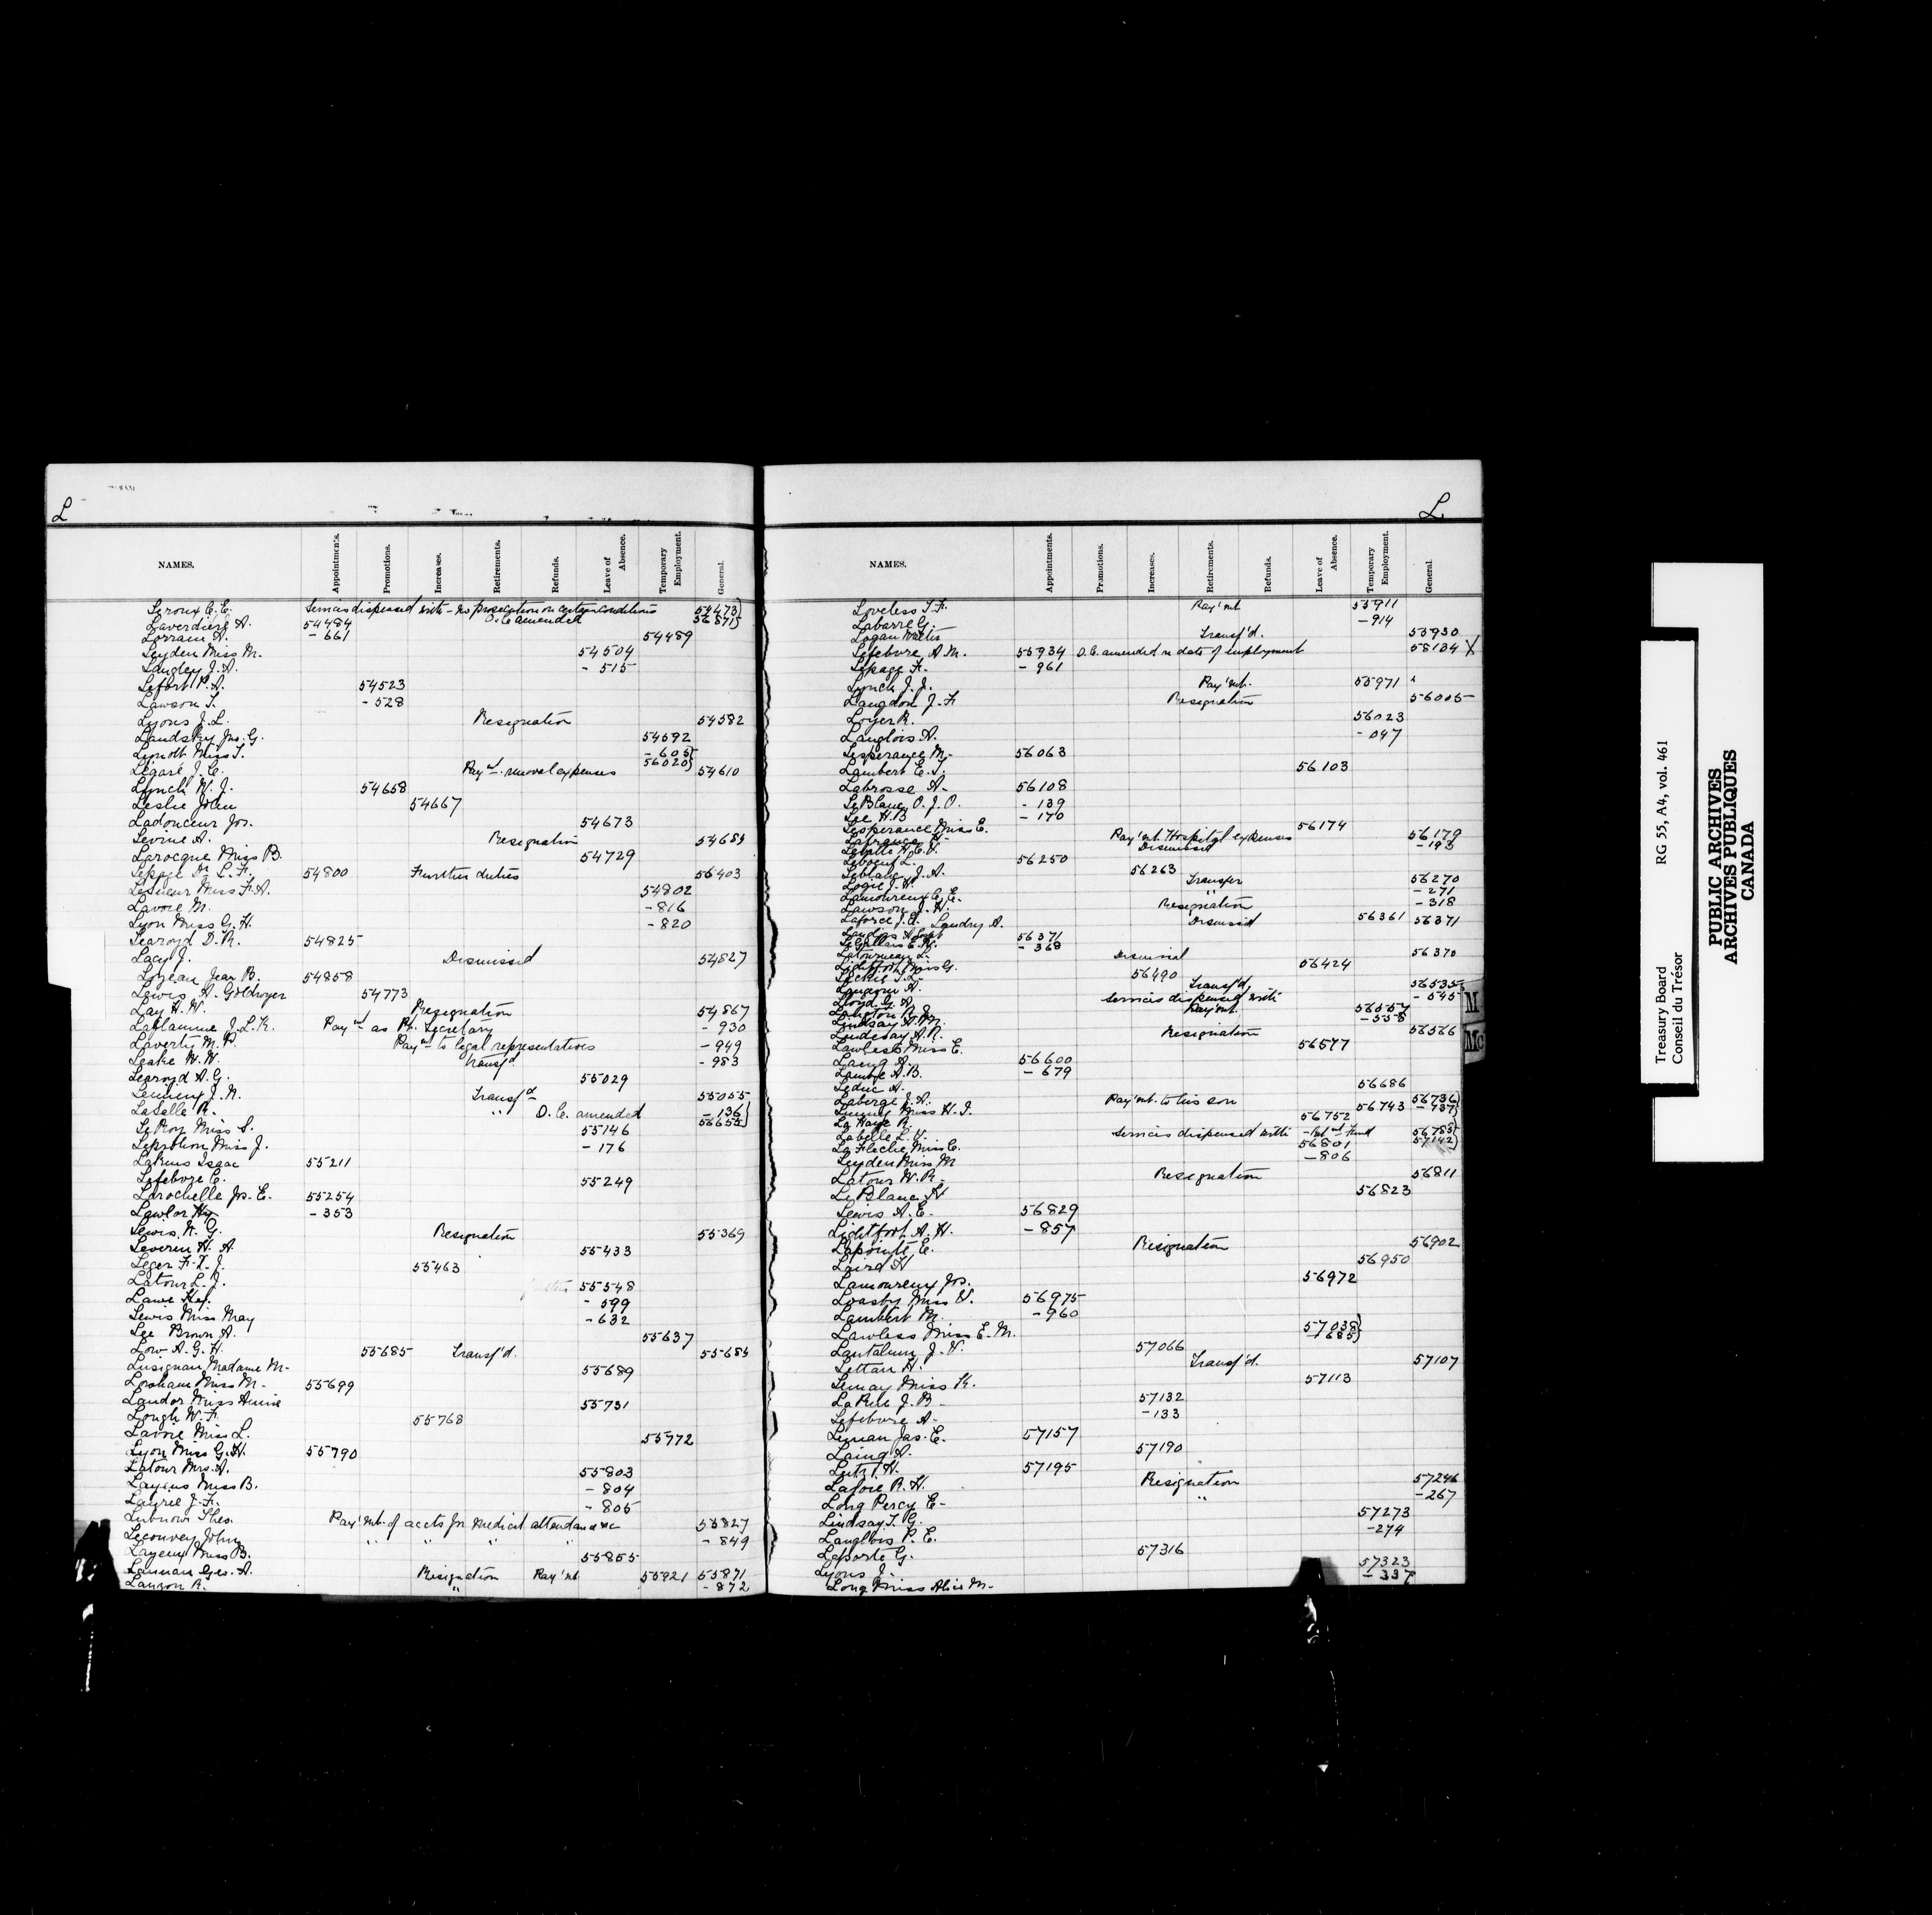 L
NAMES. Appointments. Promotions. Increases. Retirements. Refunds. Leave of Absence. Temporary Employment. General.
Leroux E. E. Services dispensed with - no prosecution on certain conditions 54473)
Laverdiere A. 54484 O.C. amended 56871)
Lorrain A. - 661 54489
Leyden Miss M. 54504
Langley J. A. - 515
Lefort P. A. 54523
Lawson T. - 528
Lyons J. L. Resignation 54582
Landsky Jno. G. 54592
Lynott Miss T. - 605) 56020)
Legaré J. E. Pay't removal expenses 54610
Lynch W. J. 54658
Leslie John 54667
Ladouceur Jos. 54673
Levine A. Resignation 54684
Larocque Miss B. 54729
Lepage Dr L. F. 54800 Further duties 56403
LeSueur Miss F. A. 54802
Lavoie M. - 816
Lyon Miss G. H. - 820
Learoyd D. R. 54825
Lacy J. Dismissed 54827
Lozeau Jean B. 54858
Lewis A. Goldroyer 54773
Lay H. W. Resignation 54867
Laflamme J. L. K. Pay't as Pr. Secretary - 930
Laverty M. P. Pay't to legal representatives - 949
Leake W. W. Transf'd - 983
Learoyd A. G. 55029
Leming J. N. Transf'd 55055
LaSalle R. " O.C. amended - 136) 56655)
LeRoy Miss S. 55146
Miss J. - 176
Isaac 55211
Lefebvre C. 55249
Larochelle Jos. E. 55254
Lawlor Hy - 353
Lewis N. G. Resignation 55369
Leveren H. A. 55433
Leger F. X. J. 55463
Latour L. J. 55548
Lawe Hy. - 599
Lewis Miss May - 632
Lee Brown A. 55637
Low A. G. H. 55685 Transf'd. 55684
Lusignan Madame M. 55689
Miss M. 55699
Landor Miss Annie 55731
Lough W. F. 55768
Lavoie Miss L. 55772
Lyon Miss G. H. 55790
Latour Mrs. A. 55803
Layeus Miss B. - 804
J. F. - 805
Lubnow Thos. Pay'mt. of accts for medical attendance &c 55827
Leconvey John " " " " - 849
Miss B. 55855
Geo. A. Resignation Pay'mt 55921 55871
Lauzon R. " - 872
L.
NAMES. Appointments. Promotions. Increases. Retirements. Refunds. Leave of Absence. Temporary Employment. General.
Loveless T. F. Pay'mt 55911
Labarre G. - 914
Logan Walter Transf'd. 55930
Lefebvre A. M. 55934 O.C. amended re date of employment 58134 X
Lepage F. - 961
Lynch J. J. Pay'mt. 55971
Langdon J. F. Resignation 56005
Loyer R. 56023
Langlois A. - 047
Lesperance M. 56063
Lambert E. T. 56103
Labrosse A. 56108
LeBlanc O. J. O. - 139
Lee H. B. - 170
Lesperance Miss E. 56174
Lafrance H. Pay'mt. Hospital expenses 56179
H. E. V. Dismissed - 193
Leboeuf L. 56250
Leblanc J. A. 56263
Logie J. H. Transfer 56270
Lamoureux C. E. " - 271
Lawson J. H. Resignation - 318
Laforce J. E. Landry A. Dismissed 56361 56371
Langlois 56371
- 368
Letourneau L. Dismissed 56370
Lightfoot Miss G. 56424
Leckie T. L. 56490
Langevin A. Transf'd, 56535
Lloyd G. A. Services dispensed with - 545
Langton R. Pay'mt. 56557
Lindsay - 558
Lindesay A. R. Resignation 56566
Lawless Miss E. 56577
Lang A. 56600
Lambe A. B. - 679
Leduc A. 56686
Laberge J. A. Pay'mt. to his son 56736)
Lunny Miss H. I. 56743 - 737)
La Haye R. 56752
Labelle L. V. Services dispensed with - Ret't Fund 56785) 57142)
LaFleche Miss C. 56801
Leyden Miss M. - 806
Latour W. R. Resignation 56811
LeBlanc H. 56823
Lewis A. E. 56829
Lightfoot A. H. - 857
Lapointe E. Resignation 56902
Laird H. 56950
Lamoureux Jos. 56972
Loasby Miss V. 56975
Lambert M. - 960
Lawless Miss E. M. 57038) - 685)
Lantalum J. V. 57066
Lettan H. Transf'd. 57107
Lemay Miss K. 57113
LaRue J. B. 57132
Lefebvre A. - 133
Leman Jas. E. 57157
Laing A. 57190
Lutz H. 57195
Lafoie R. H. Resignation 57246
Long Percy E. " - 267
Lindsay T. G. 57273
Langlois P. E. - 274
Laporte G. 57316
Lyons J. 57323
Long Miss Alice M. - 337
M
Mc
Treasury Board RG 55, A4, vol. 461
Conseil du Trésor
PUBLIC ARCHIVES
ARCHIVES PUBLIQUES
CANADA